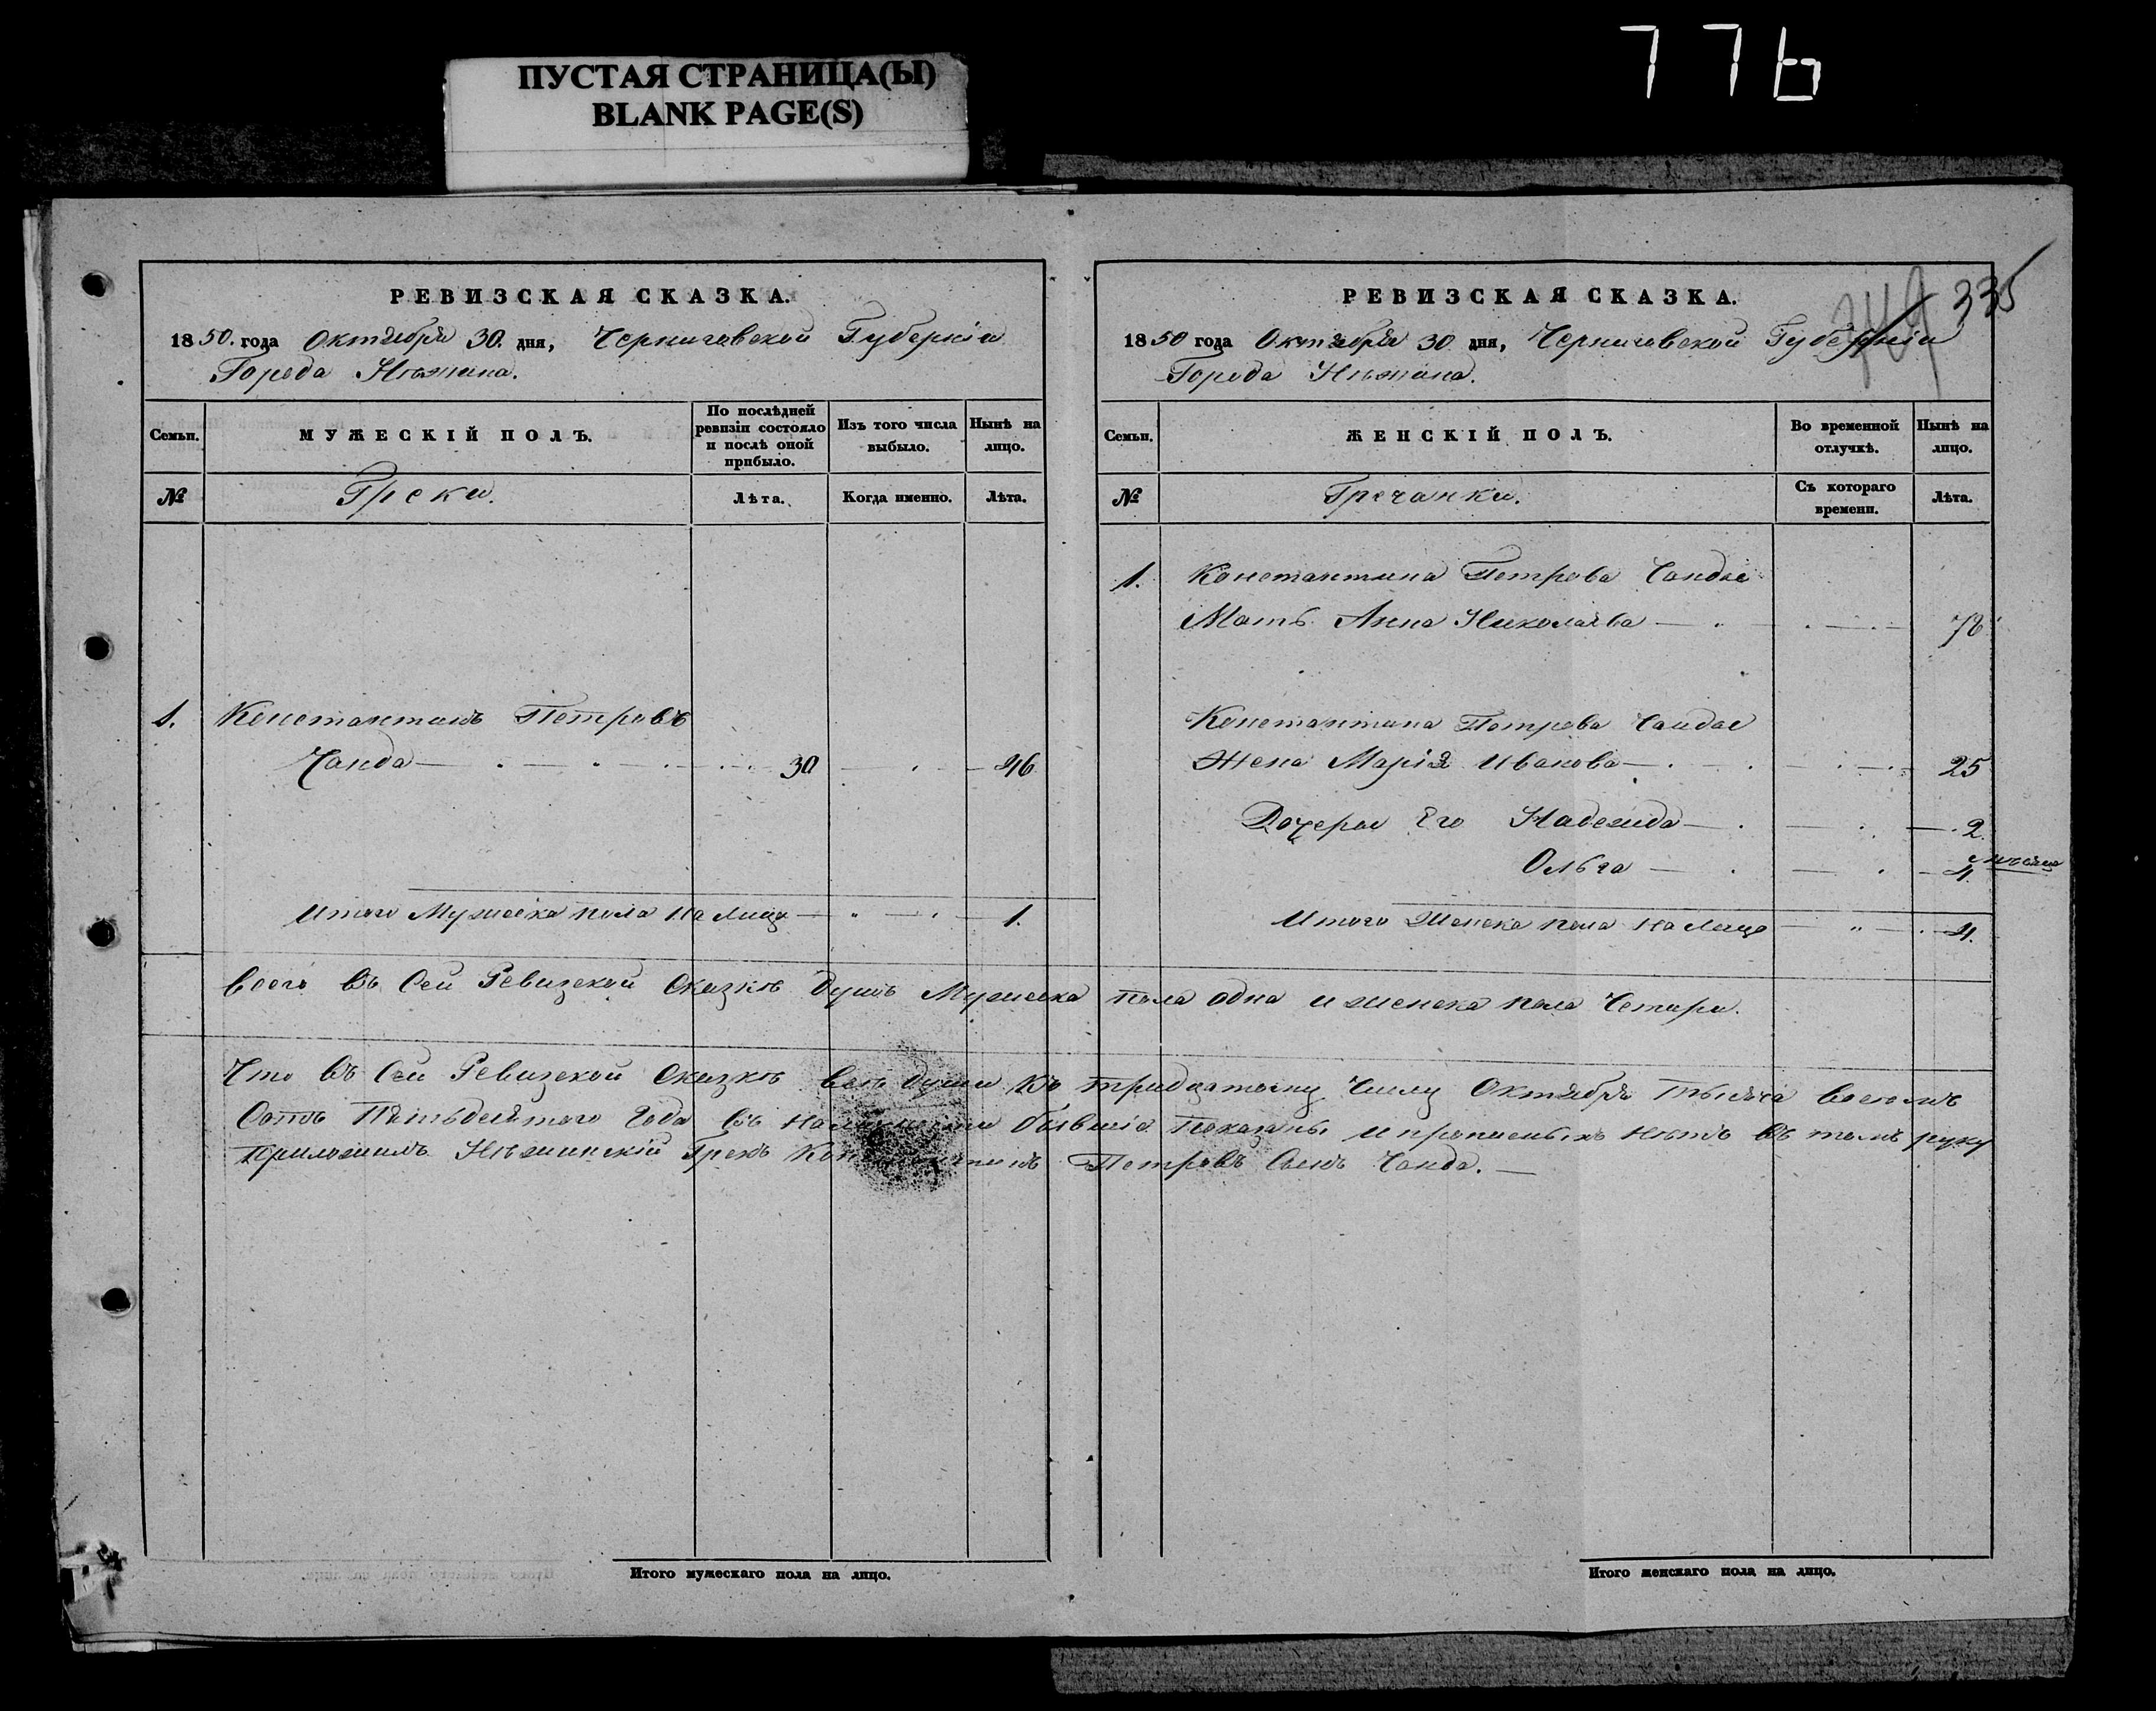 776
ПУСТАЯ СТРАНИЦА(Ы)
BLANK PAGE(S)
РЕВИЗСКАЯ СКАЗКА.
1850. года Октября 30. дня, Черниговской Губерніи
Города Нѣжина.
Семьи.
МУЖЕСКІЙ ПОЛЪ.
По послѣдней ревизіи состояло и послѣ оной прибыло.
Изъ того числа выбыло.
Нынѣ на лицо.
№
Греки.
Лѣта.
Когда именно.
Лѣта.
1. Константинъ Петровъ
Чанда 30 46
Итого Мужеска пола на лицо 1.
335
РЕВИЗСКАЯ СКАЗКА.
1850 года Октября 30 дня, Черниговской Губерніи
Города Нѣжина.
Семьи.
ЖЕНСКІЙ ПОЛЪ.
Во временной отлучкѣ.
Нынѣ на лицо.
№
Гречанки.
Съ котораго времени.
Лѣта.
1. Константина Петрова Чанды
Мать Анна Николаева 78
Константина Петрова Чанды
Жена Марія Иванова 25
Дочери Его Надежда 2
Ольга 4 мѣсяца
Итого Женска пола на лицо 4.
Всего въ Сей Ревизской Сказкѣ душъ Мужеска пола одна и женска пола Четыри.
Что въ Сей Ревизской Сказкѣ всѣ души Ко тридцатому Числу Октября тысяча восемъ
Сотъ Пятьдесятого Года въ наличности бывшіе показаны и прописныхъ нѣтъ въ томъ руку
приложилъ Нѣжинскій Грекъ Константинъ Петровъ Сынъ Чанда.
Итого мужескаго пола на лицо.
Итого женскаго пола на лицо.